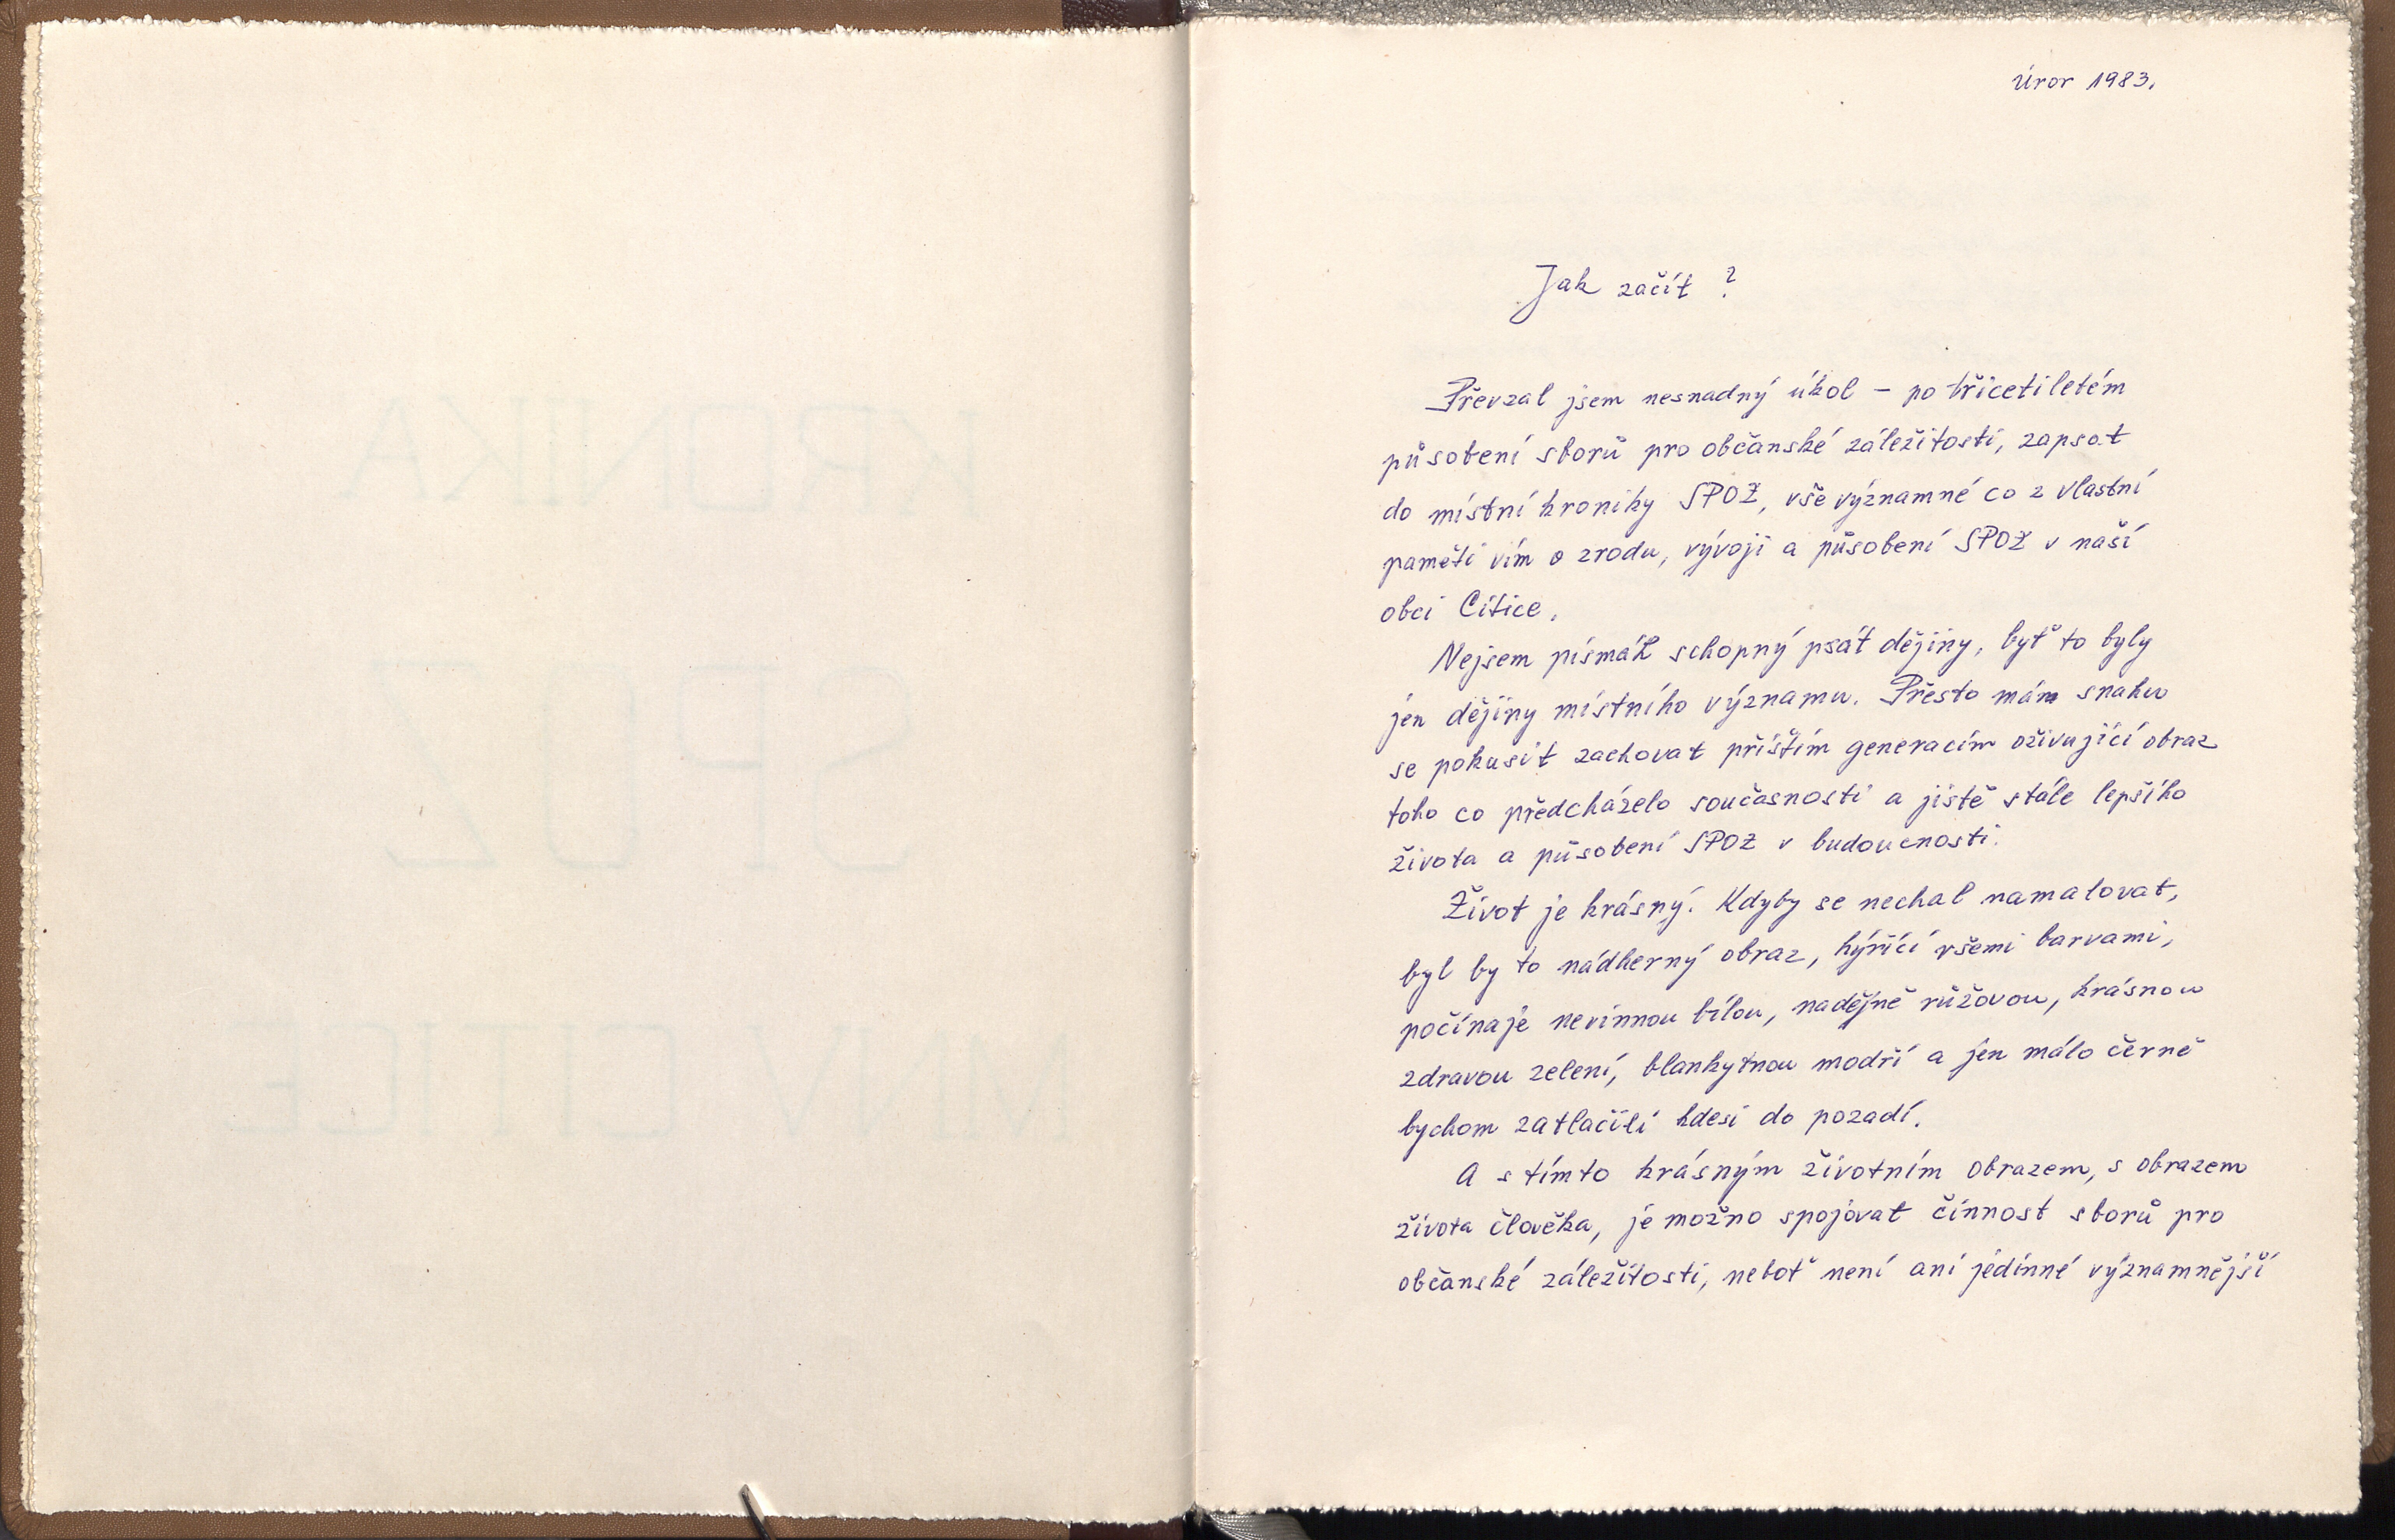 KRONIKA
SPOZ
MNV CITICE
Únor 1983.
Jak začít ?
Převzal jsem nesnadný úkol – po třicetiletém
působení sborů pro občanské záležitosti, zapsat
do místní kroniky SPOZ, vše významné co z vlastní
paměti vím o zrodu, vývoji a působení SPOZ v naší
obci Citice.
Nejsem písmák schopný psát dějiny, byť to byly
jen dějiny místního významu. Přesto mám snahu
se pokusit zachovat příštím generacím oživující obraz
toho co předcházelo současnosti a jistě stále lepšího
života a působení SPOZ v budoucnosti.
Život je krásný. Kdyby se nechal namalovat,
byl by to nádherný obraz, hýřící všemi barvami,
počínaje nevinnou bílou, nadějně růžovou, krásnou
zdravou zelení, blankytnou modří a jen málo černě
bychom zatlačili kdesi do pozadí.
A s tímto krásným životním obrazem, s obrazem
života člověka, je možno spojovat činnost sborů pro
občanské záležitosti, neboť není ani jedinné významnější